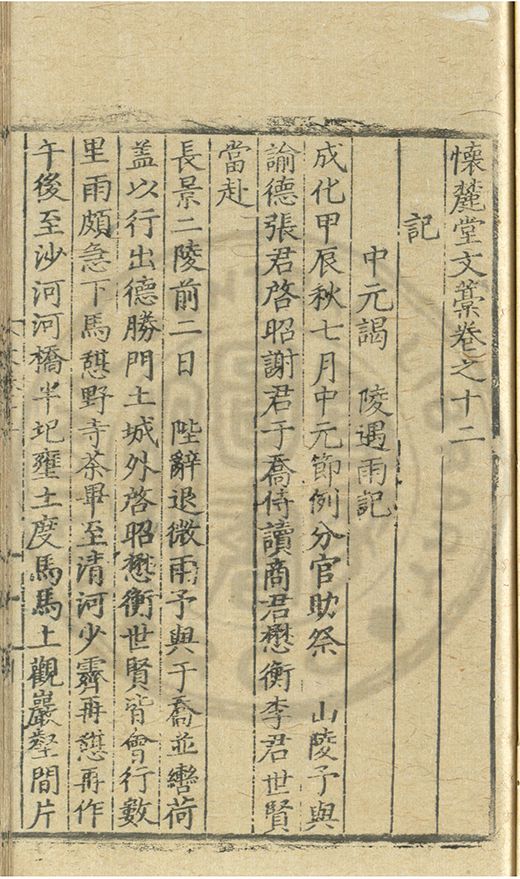 懷麓堂文藁卷之十二
記
中元謁　陵遇雨記
成化甲辰秋七月中元節例分官助祭　山陵予與
諭德張君啓昭謝君于喬侍讀商君懋衡李君世賢
當赴
長景二陵前二日　陛辭退微雨予與于喬並轡荷
盖以行出德勝門土城外啓昭懋衡世賢皆會行數
里雨頗急下馬憇野寺茶畢至清河少霽再憇再作
午後至沙河河橋半圮壅土度馬馬上觀巖壑間片